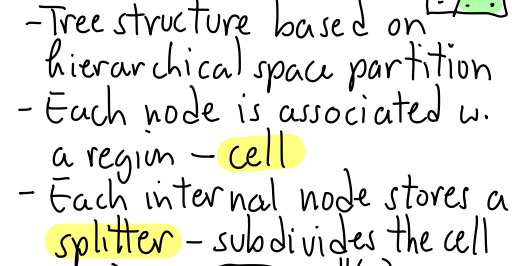 -Tree structure based on
hierarchical space partition
- Each node is associated w.
a region - cell
- Each internal node stores a
splitter - subdivides the cell